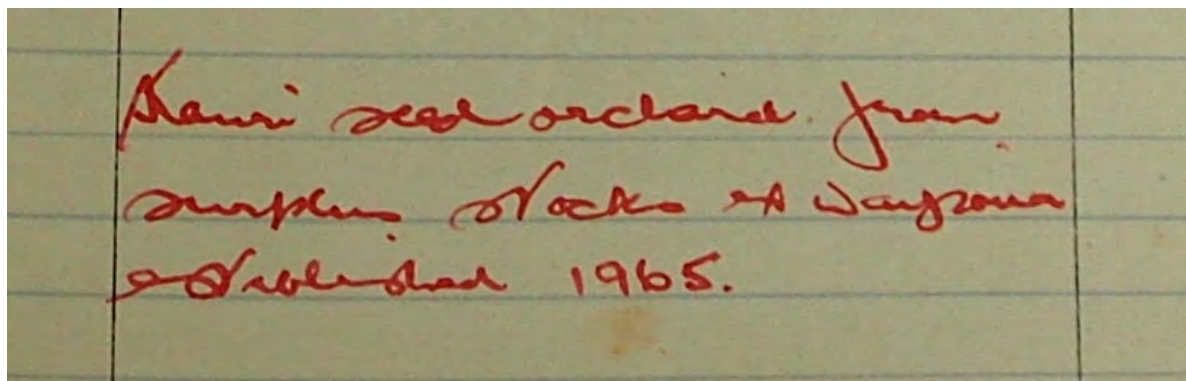 Kauri seed orchard from
surplus stocks ex Waipoua
established 1965.